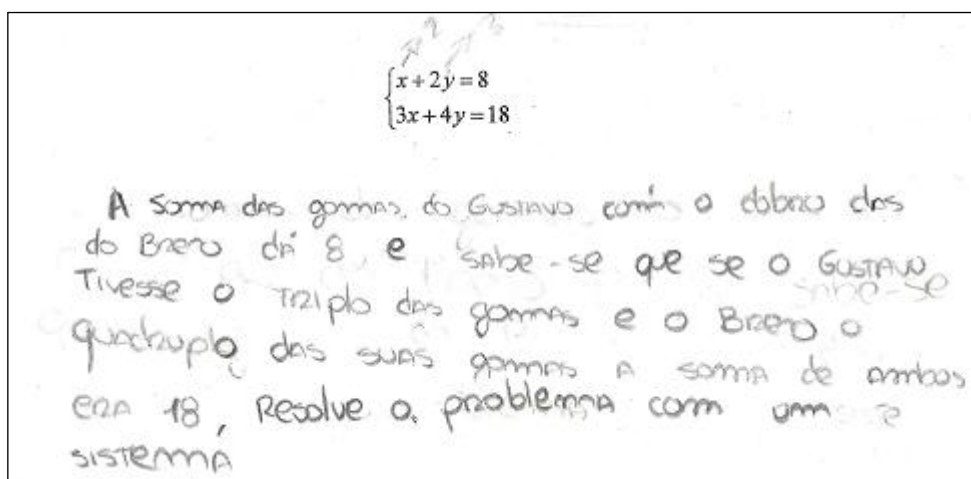 x + 2y = 8
3x + 4y = 18
A soma das gomas do Gustavo com o dobro das
do Breno dá 8 e sabe-se que se o Gustavo
Tivesse o triplo das gomas e o Breno o
quadruplo das suas gomas a soma de ambos
era 18, Resolve o problema com um
sistema